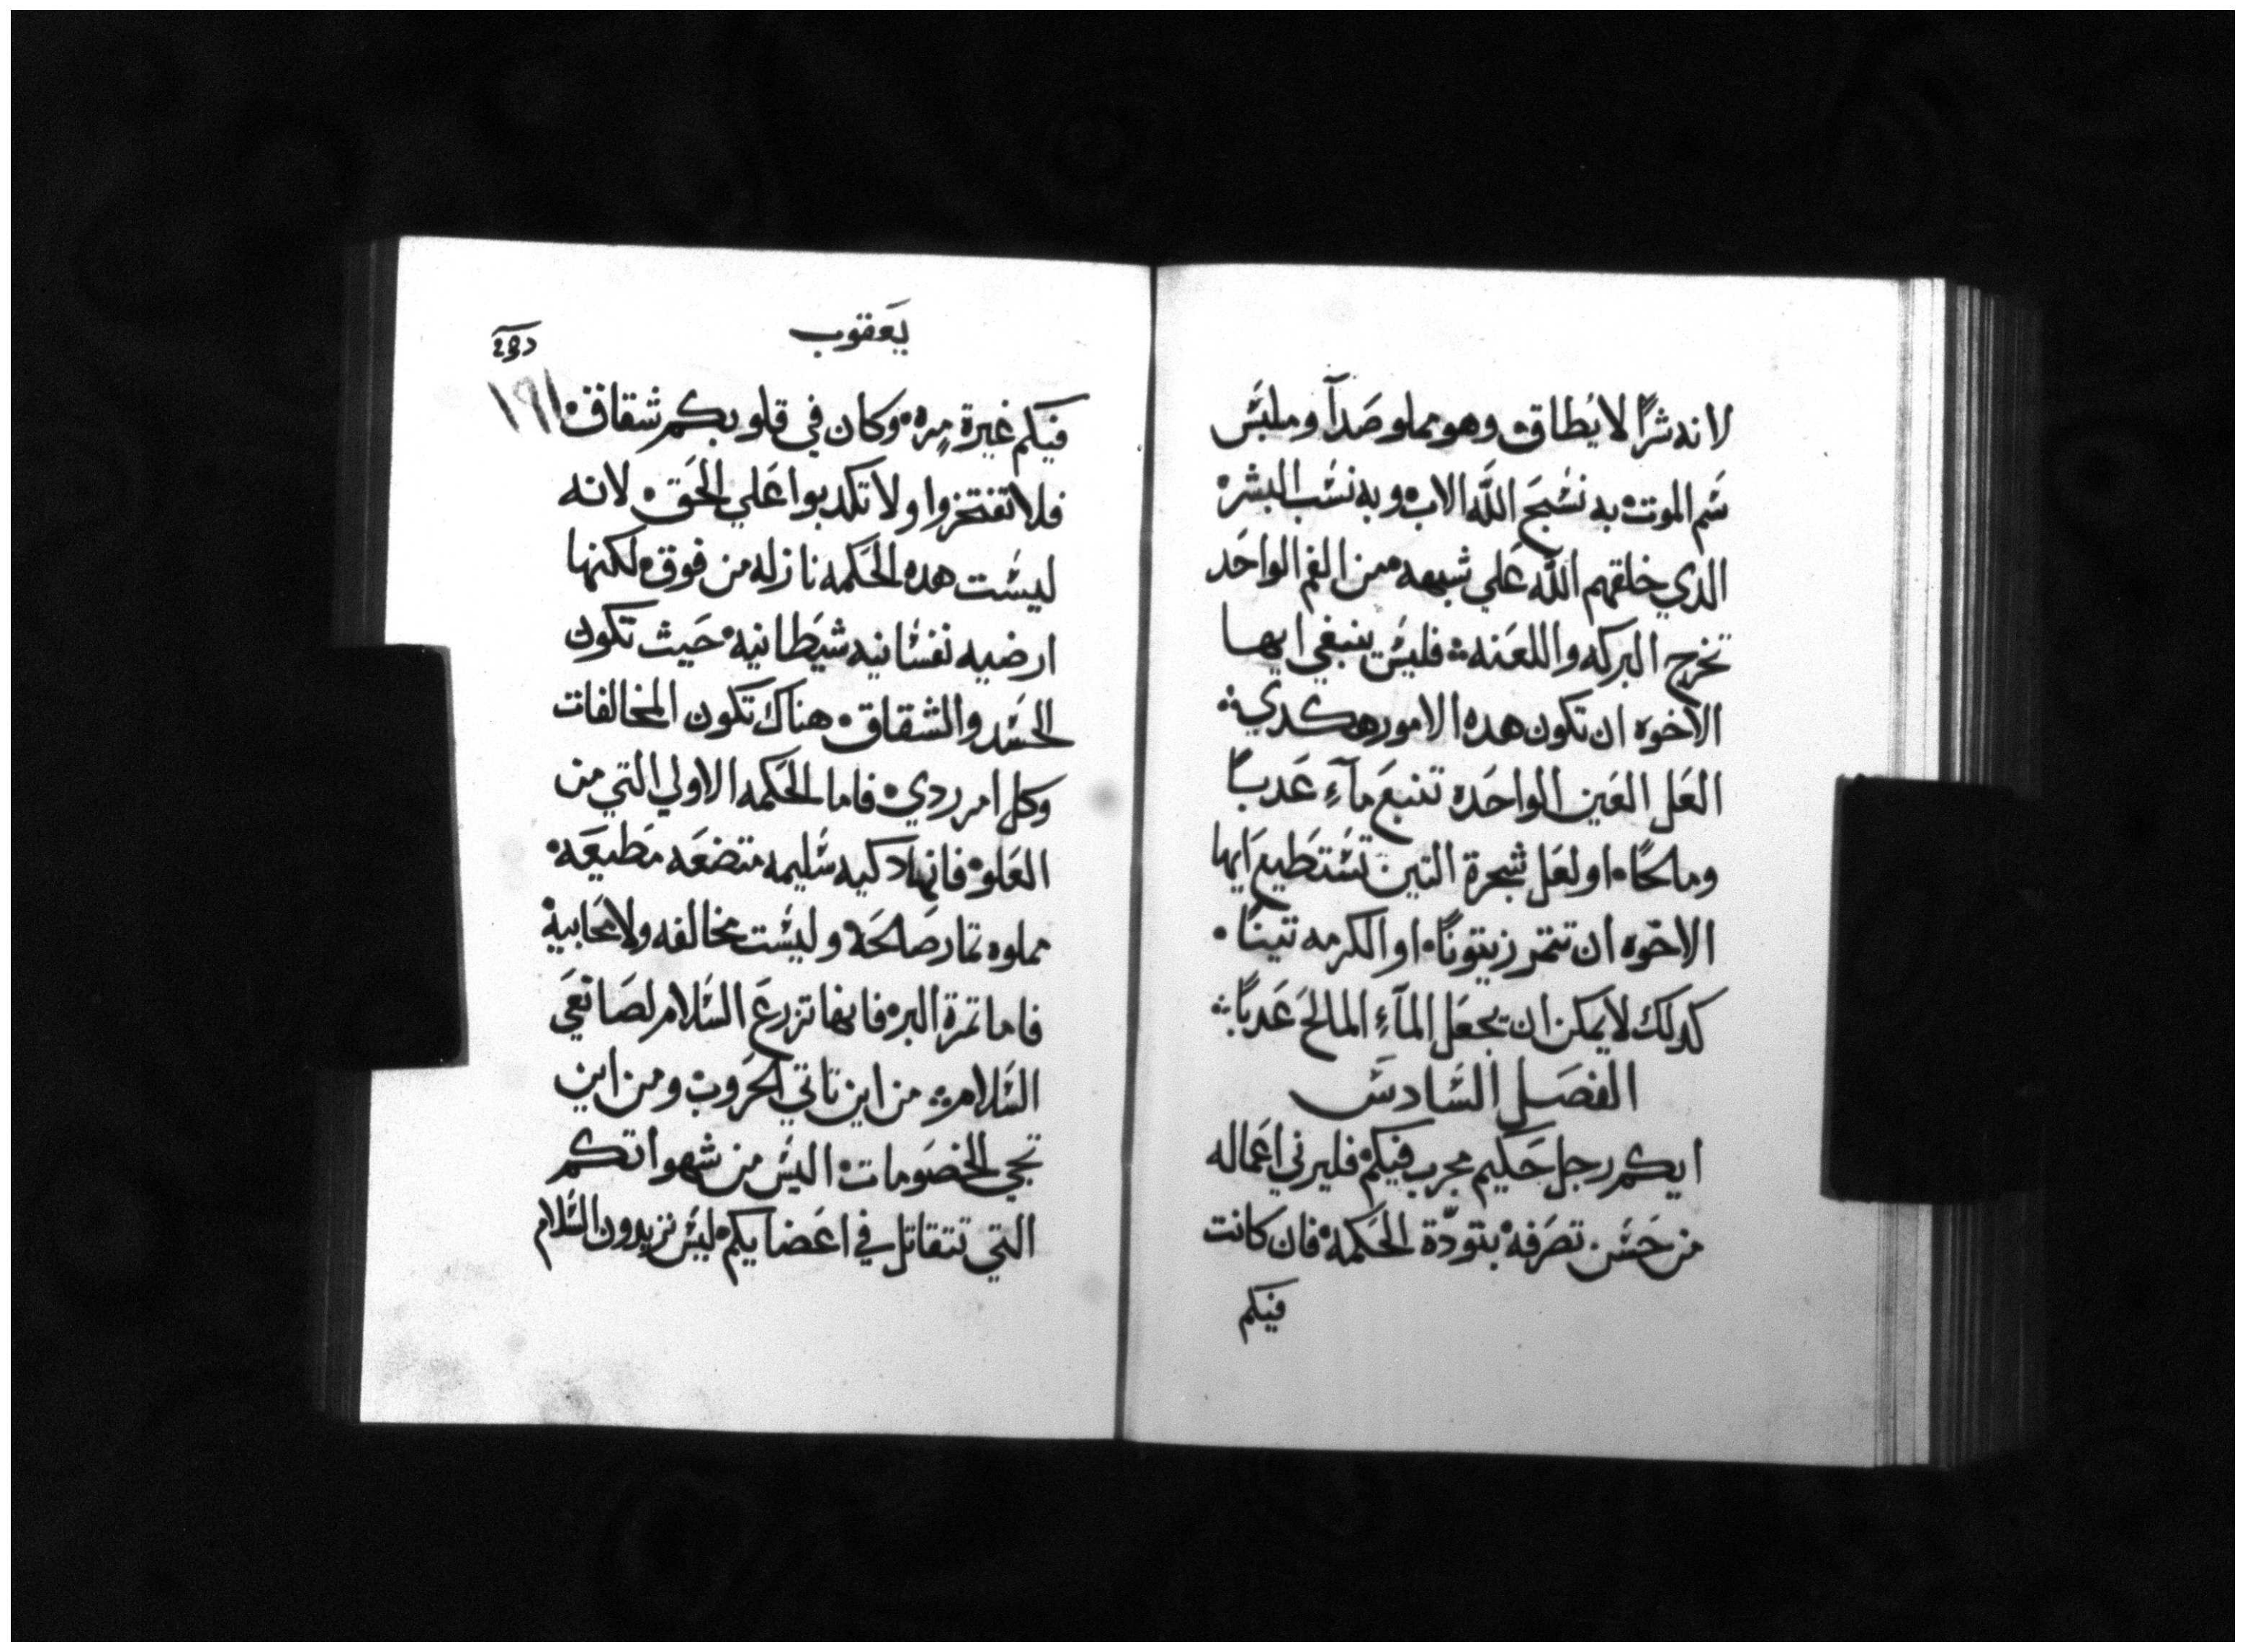 لانه شرًا لا يُطاق۰ وهو مملو صَدآ وملبَس
سَم الموت۰ به نسَبحَ اللَّه الاب۰ وبه نسَب البشر۰
الدي خلقهم اللَّه عَلي شبهه۰ من الفم الواحَد
تخرج البركه واللعَنه۰۰ فليسَ ينبغي ايها
الاخوه ان تكون هده الامور هكدي۰۰
العَل العَين الواحَده تنبعَ مآءٍ عَدبًا
ومالحًا۰ او لعَل شجرة التين تسَتطيع ايها
الاخوه ان تتمر زيتونًا۰ او الكرمه تينًا۰
كدلك لا يمكن ان يجعَل المآءِ المالحَ عَدبًا۰۰
الفصَل السَادسَ
ايكم رجل حَكيم مجرب فيكم۰ فليرني اعَماله
من حَسَن تصَرفه۰ بتودّة الحَكمه۰ فان كانت
فيكم
يَعقوب
فيكم غيرة مِره۰ وكان في قلوبكم شقاق۰ ١٩١
فلا تفتخروا ولا تكدبوا عَلي الحَق۰ لانه
ليسَت هده الحَكمه نازله من فوق۰ لكنها
ارضيه نفسَانيه شيَطانيه۰ حَيث تكون
الحَسَد والشقاق۰ هناك تكون المخالفات
وكل امر ردي۰ فاما الحَكمه الاولي التي من
العَلو۰ فانها دكيه سَليمه متضعَه مَطيعَه۰
مملوه تمار صَالحَه۰ وليسَت مخالفه ولا محَابيه۰
فاما تمرة البر۰ فانها تزرعَ السَلام لصَانعَي
السَلام۰۰ من اين تاتي الحَروب۰ ومن اين
تجي الخصَومات۰ اليسَ من شهواتكم
التي تتقاتل في اعَضايكم۰ ليسَ تريدون السَلام